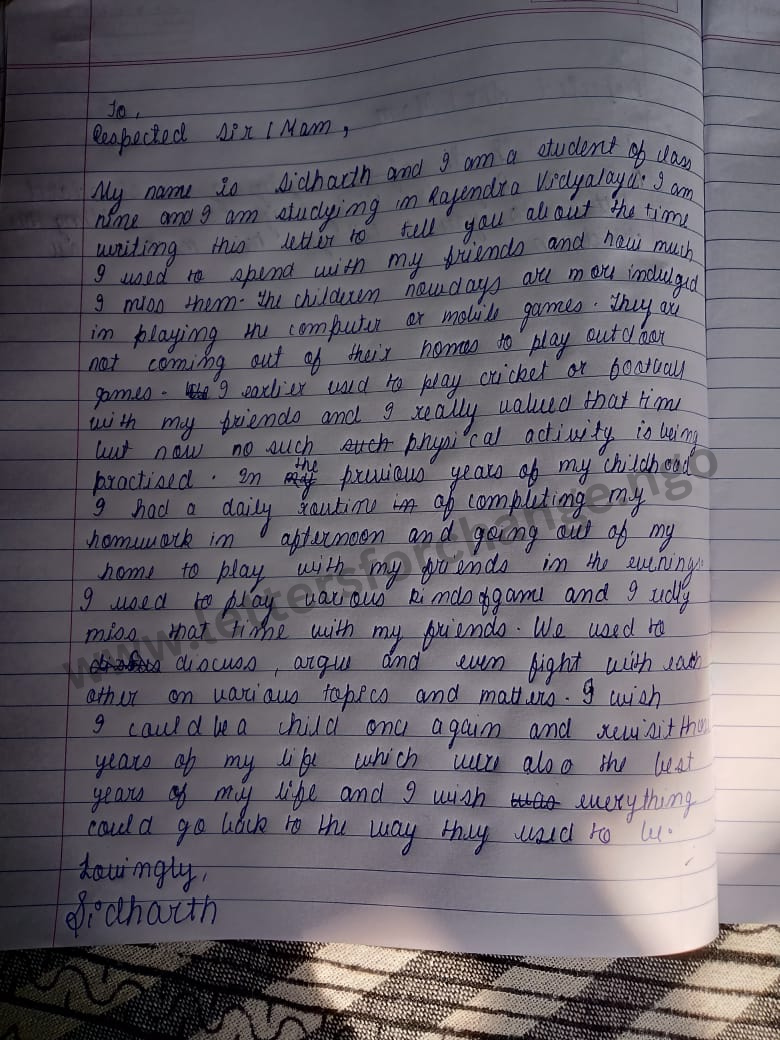 To,
Respected Sir / Mam,
My name is Sidharth and I am a student of class
nine and I am studying in Rajendra Vidyalaya. I am
writing this letter to tell you about the time
I used to spend with my friends and how much
I miss them. The childeren nowdays are more indulged
in playing the computer or mobile games. They are
not coming out of their homes to play outdoor
games. I earlier used to play cricket or football
with my friends and I really valued that time
but now no such such physical activity is being
practised. In the previous years of my childhood
I had a daily routine in of completing my
homework in afternoon and going out of my
home to play with my friends in the evening.
I used to play various kinds of game and I really
miss that time with my friends. We used to
discuss, argue and even fight with each
other on various topics and matters. I wish
I could be a child once again and revisit those
years of my life which were also the best
years of my life and I wish was everything
could go back to the way they used to be.
Lovingly,
Sidharth
www.lettersforchange.ngo